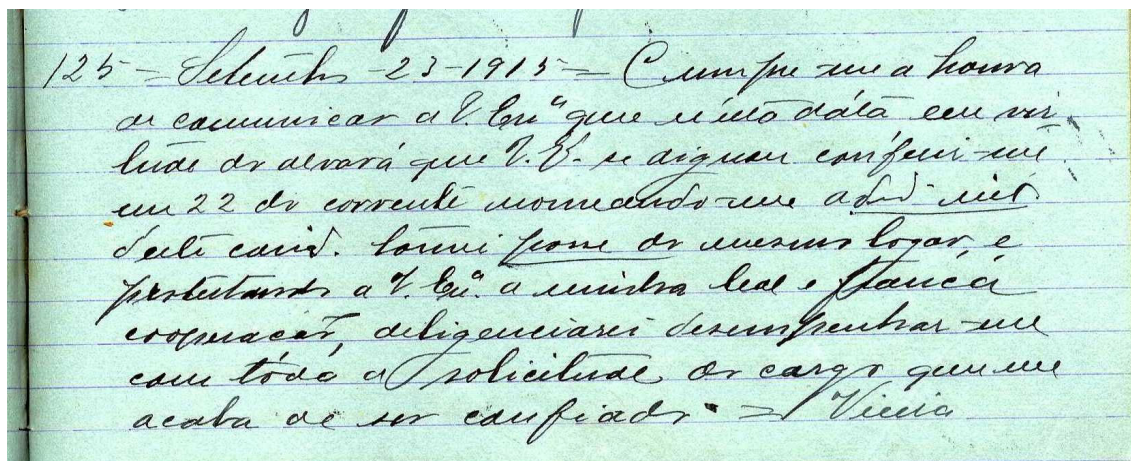 125 = Setembro - 23 - 1915 = Cumpre-me a honra
de comunicar a V. Exª que n'esta dáta em vir-
tude do alvará que V. E. se dignou conferir-me
em 22 do corrente nomeando-me
d'este conc. tomei posse do mesmo logar, e
protestando a V. Exª. a minha leal e franca
cooperação, deligenciarei desempenhar-me
com tóda a solicitude do cargo que me
acaba de ser confiado. = Vieira